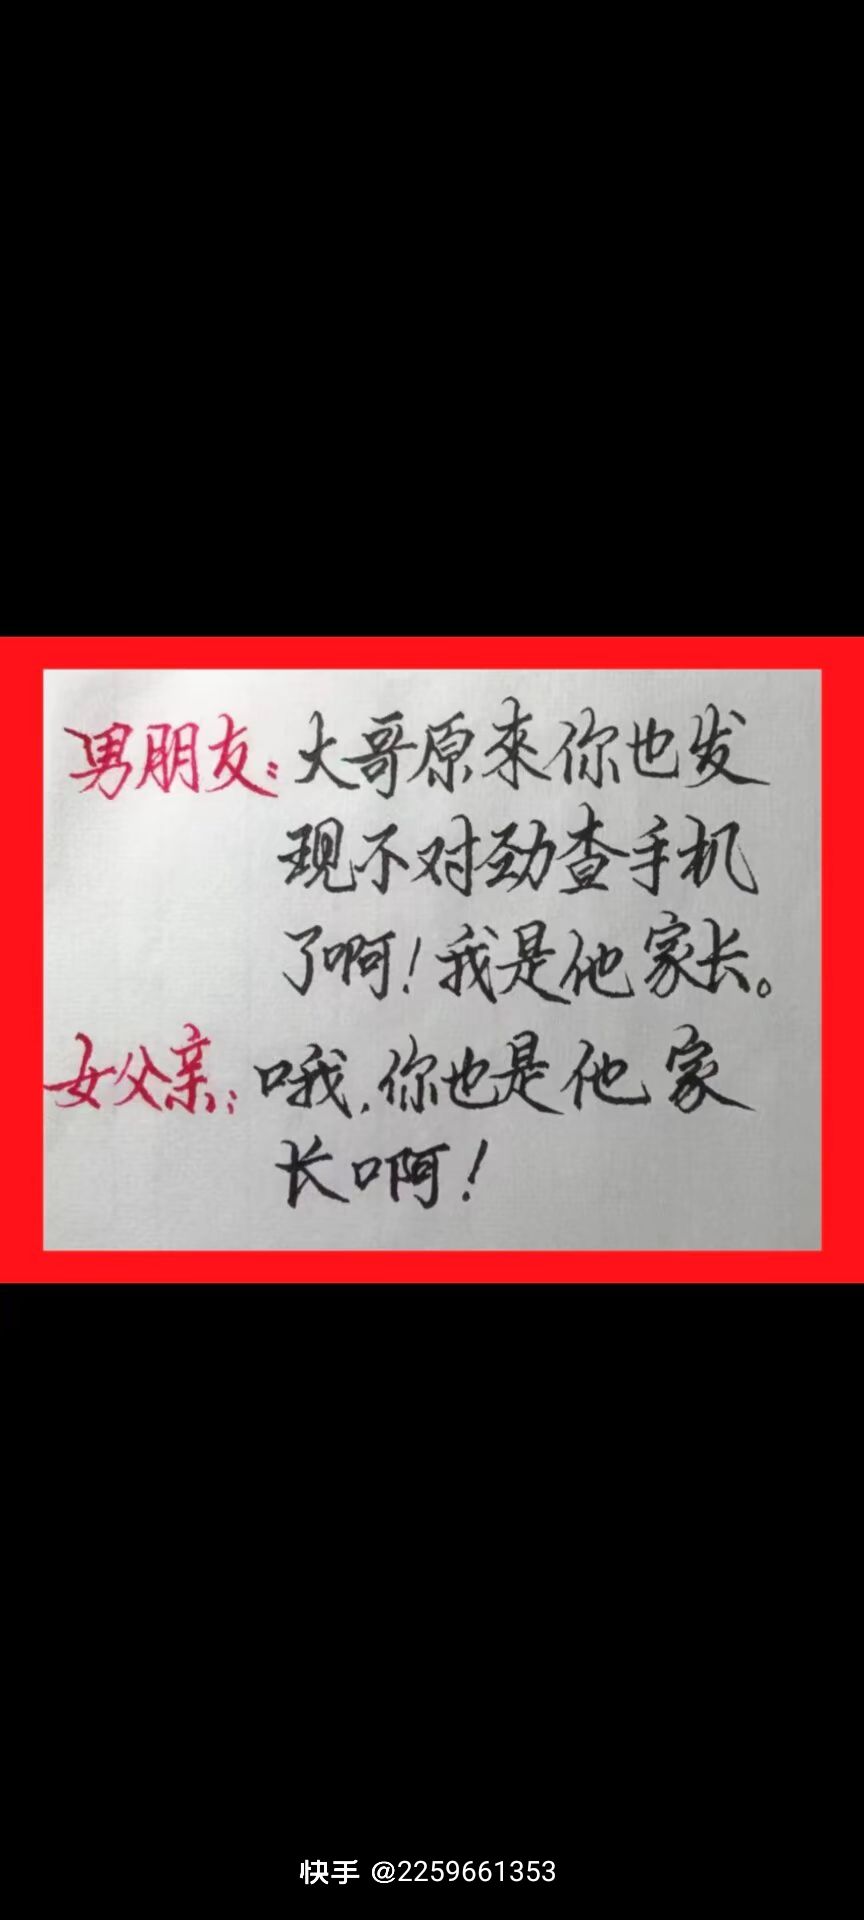 男朋友：大哥原來你也发
现不对劲查手机
了啊！我是他家长。
女父亲：哦，你也是他家
长啊！
快手 @2259661353